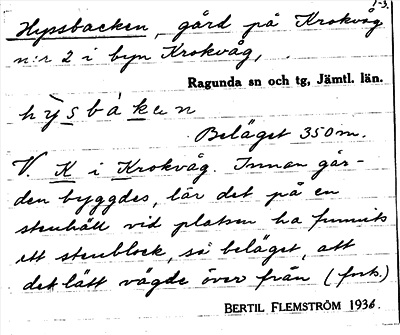 1-3.
Hyssbacken, gård på Krokvåg
n:r 2 i byn Krokvåg,
Ragunda sn och tg, Jämtl. län.
hy̆sbàken
Beläget 350 m.
V. K i Krokvåg. Innan går-
den byggdes, lär det på en
stenhäll vid platsen ha funnits
ett stenblock, så beläget, att
det lätt vägde över från (forts.)
BERTIL FLEMSTRÖM 1936.